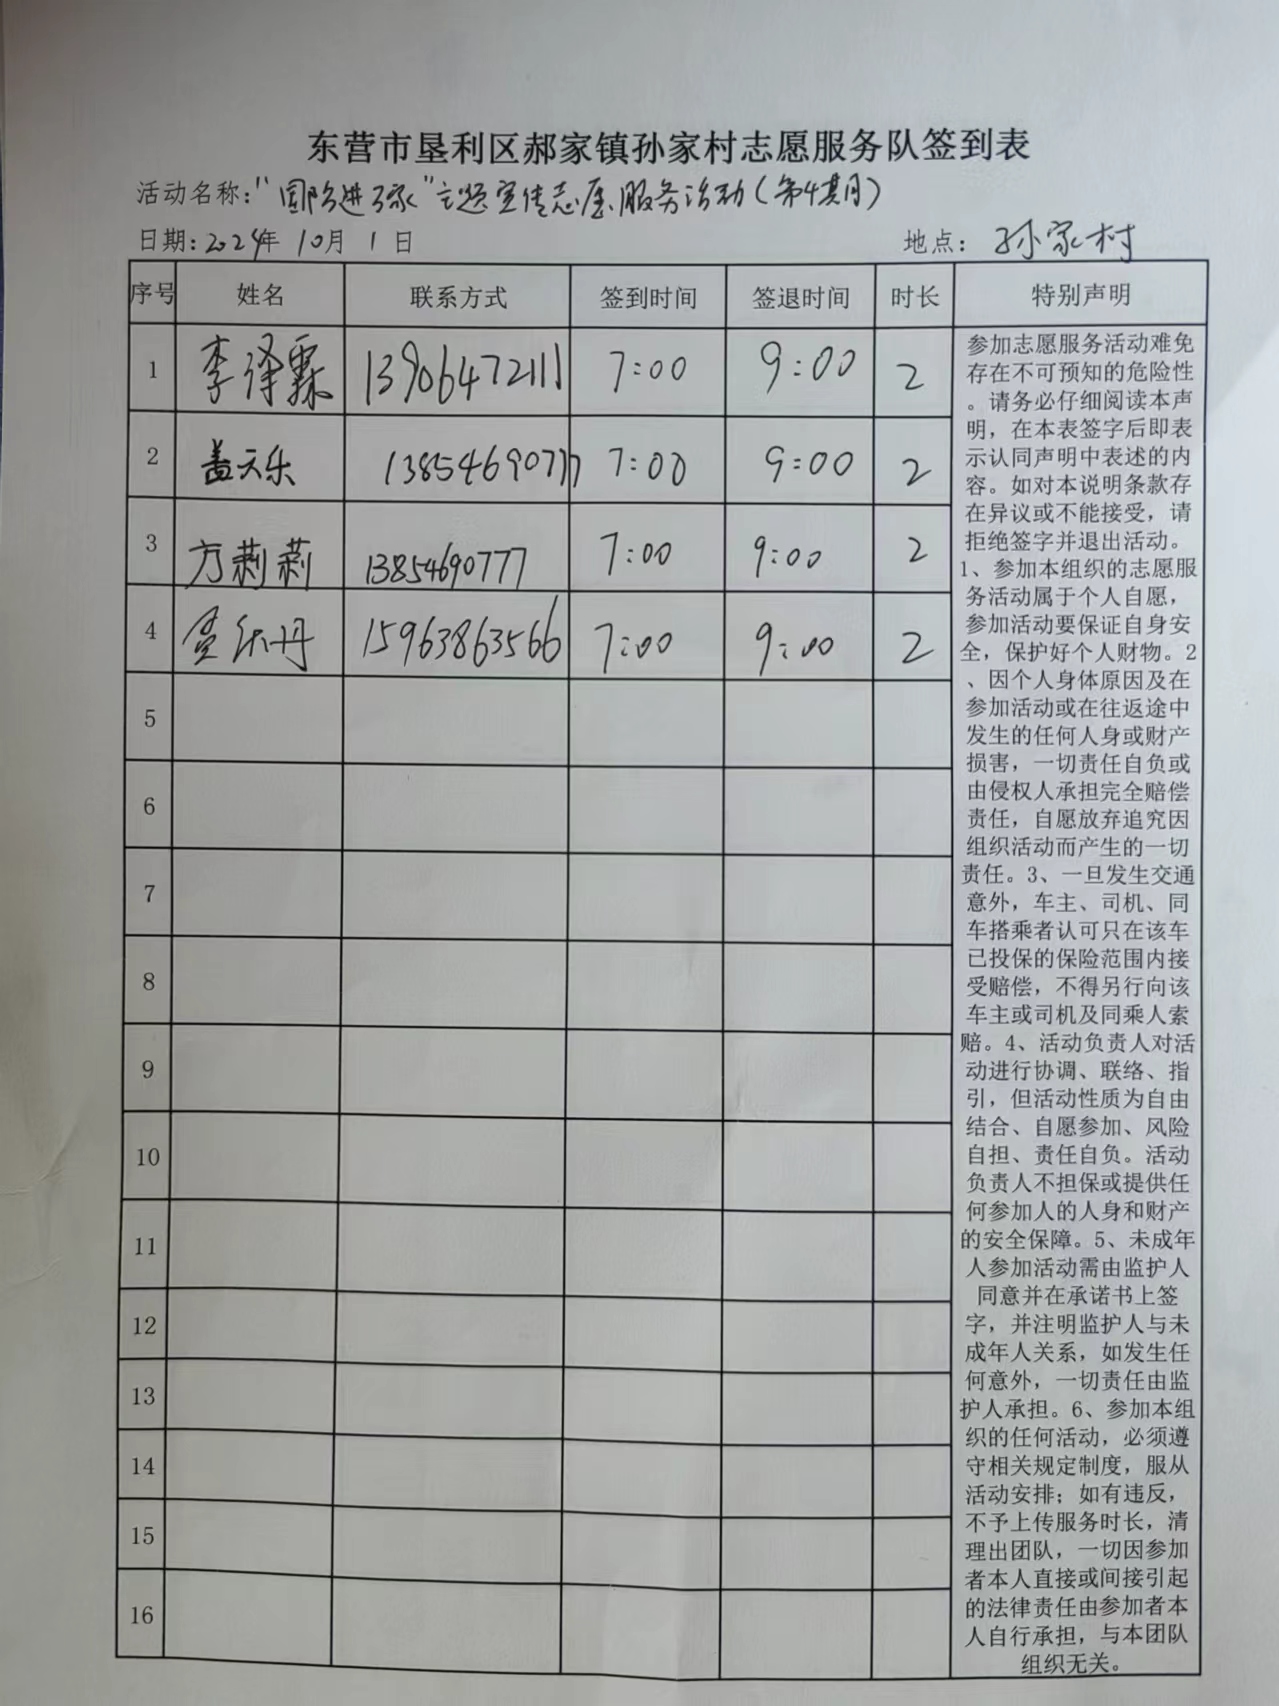 东营市垦利区郝家镇孙家村志愿服务队签到表
活动名称:“国防进万家”主题宣传志愿服务活动(第4期)
日期:2024年 10月 1日 地点: 孙家村
序号 姓名 联系方式 签到时间 签退时间 时长 特别声明
1 李泽霖 13906472111 7:00 9:00 2
2 盖天乐 13854690777 7:00 9:00 2
3 方莉莉 13854690777 7:00 9:00 2
4 15963863566 7:00 9:00 2
5
6
7
8
9
10
11
12
13
14
15
16
参加志愿服务活动难免
存在不可预知的危险性
。请务必仔细阅读本声
明，在本表签字后即表
示认同声明中表述的内
容。如对本说明条款存
在异议或不能接受，请
拒绝签字并退出活动。
1、参加本组织的志愿服
务活动属于个人自愿，
参加活动要保证自身安
全，保护好个人财物。2
、因个人身体原因及在
参加活动或在往返途中
发生的任何人身或财产
损害，一切责任自负或
由侵权人承担完全赔偿
责任，自愿放弃追究因
组织活动而产生的一切
责任。3、一旦发生交通
意外，车主、司机、同
车搭乘者认可只在该车
已投保的保险范围内接
受赔偿，不得另行向该
车主或司机及同乘人索
赔。4、活动负责人对活
动进行协调、联络、指
引，但活动性质为自由
结合、自愿参加、风险
自担、责任自负。活动
负责人不担保或提供任
何参加人的人身和财产
的安全保障。5、未成年
人参加活动需由监护人
同意并在承诺书上签
字，并注明监护人与未
成年人关系，如发生任
何意外，一切责任由监
护人承担。6、参加本组
织的任何活动，必须遵
守相关规定制度，服从
活动安排；如有违反，
不予上传服务时长，清
理出团队，一切因参加
者本人直接或间接引起
的法律责任由参加者本
人自行承担，与本团队
组织无关。